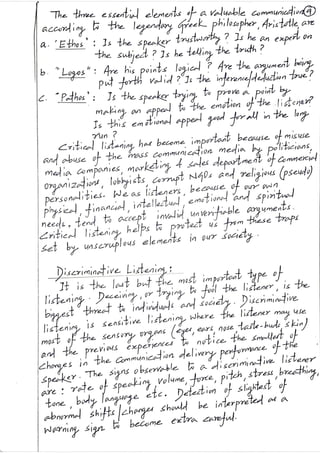 The three essential elements of a valuable communication 4
according to the legendary Greek philosopher, Aristotle are
a. "Ethos": Is the speaker trustworthy? Is he an expert on
the subject? Is he telling the truth?
b. "Logos": Are his points logical? Are the argument being
put forth valid? Is the inference/deduction true?
c. "Pathos": Is the speaker trying to prove a point by
making an appeal to the emotion of the listener?
Is this emotional appeal good for all in the long
run?
Critical listening has become important because of misuse
and abuse of the mass communication media by politicians,
media companies, marketing & sales department of commercial
organizations, lobbyists corrupt NGOs and religious (pseudo)
personalities. We as listeners, because of our own
physical, financial, intellectual, emotional and spiritual
needs, tend to accept invalid unverifiable arguments.
Critical listening helps to protect us from these traps
set by unscruplous elements in our society.
Discriminative Listening:
It is the last but the most important type of
listening. Deceiving, or trying to fool the listener, is the
biggest threat to individuals and society. Discriminative
listening is sensitive listening, where the listener may use
most of the sensory organs (eyes, ears, nose taste-buds skin)
and the previous experiences to notice the smallest of
changes in the communication delivery performance of the
speaker. The signs observable to a discriminative listener
are: rate of speaking, volume, force, pitch, stress, breathing,
tone, body language etc. Detection of slightest of
abnormal shifts/changes should be interpreted as a
warning sign to become extra careful.